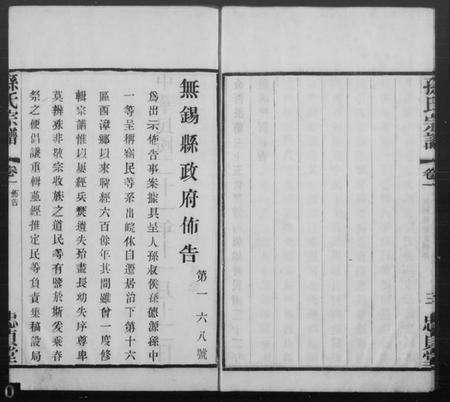 孫氏宗譜
卷一
三
忠貞堂
無錫縣政府佈告
第一六八號
為出示佈告事案據具呈人孫叔侯孫德源孫中
一等呈稱竊民等系出皖休自遷居治下第十六
區西漳鄉以來歷經六百餘年其間雖曾一度修
輯宗譜惟以屢經兵燹遺失殆盡長幼失序尊卑
莫辨殊非敬宗收族之道民等有鑒於斯爰乘春
祭之便倡議重輯並經推定民等負責集稿設局
孫氏宗譜
卷一
佈告
忠貞堂